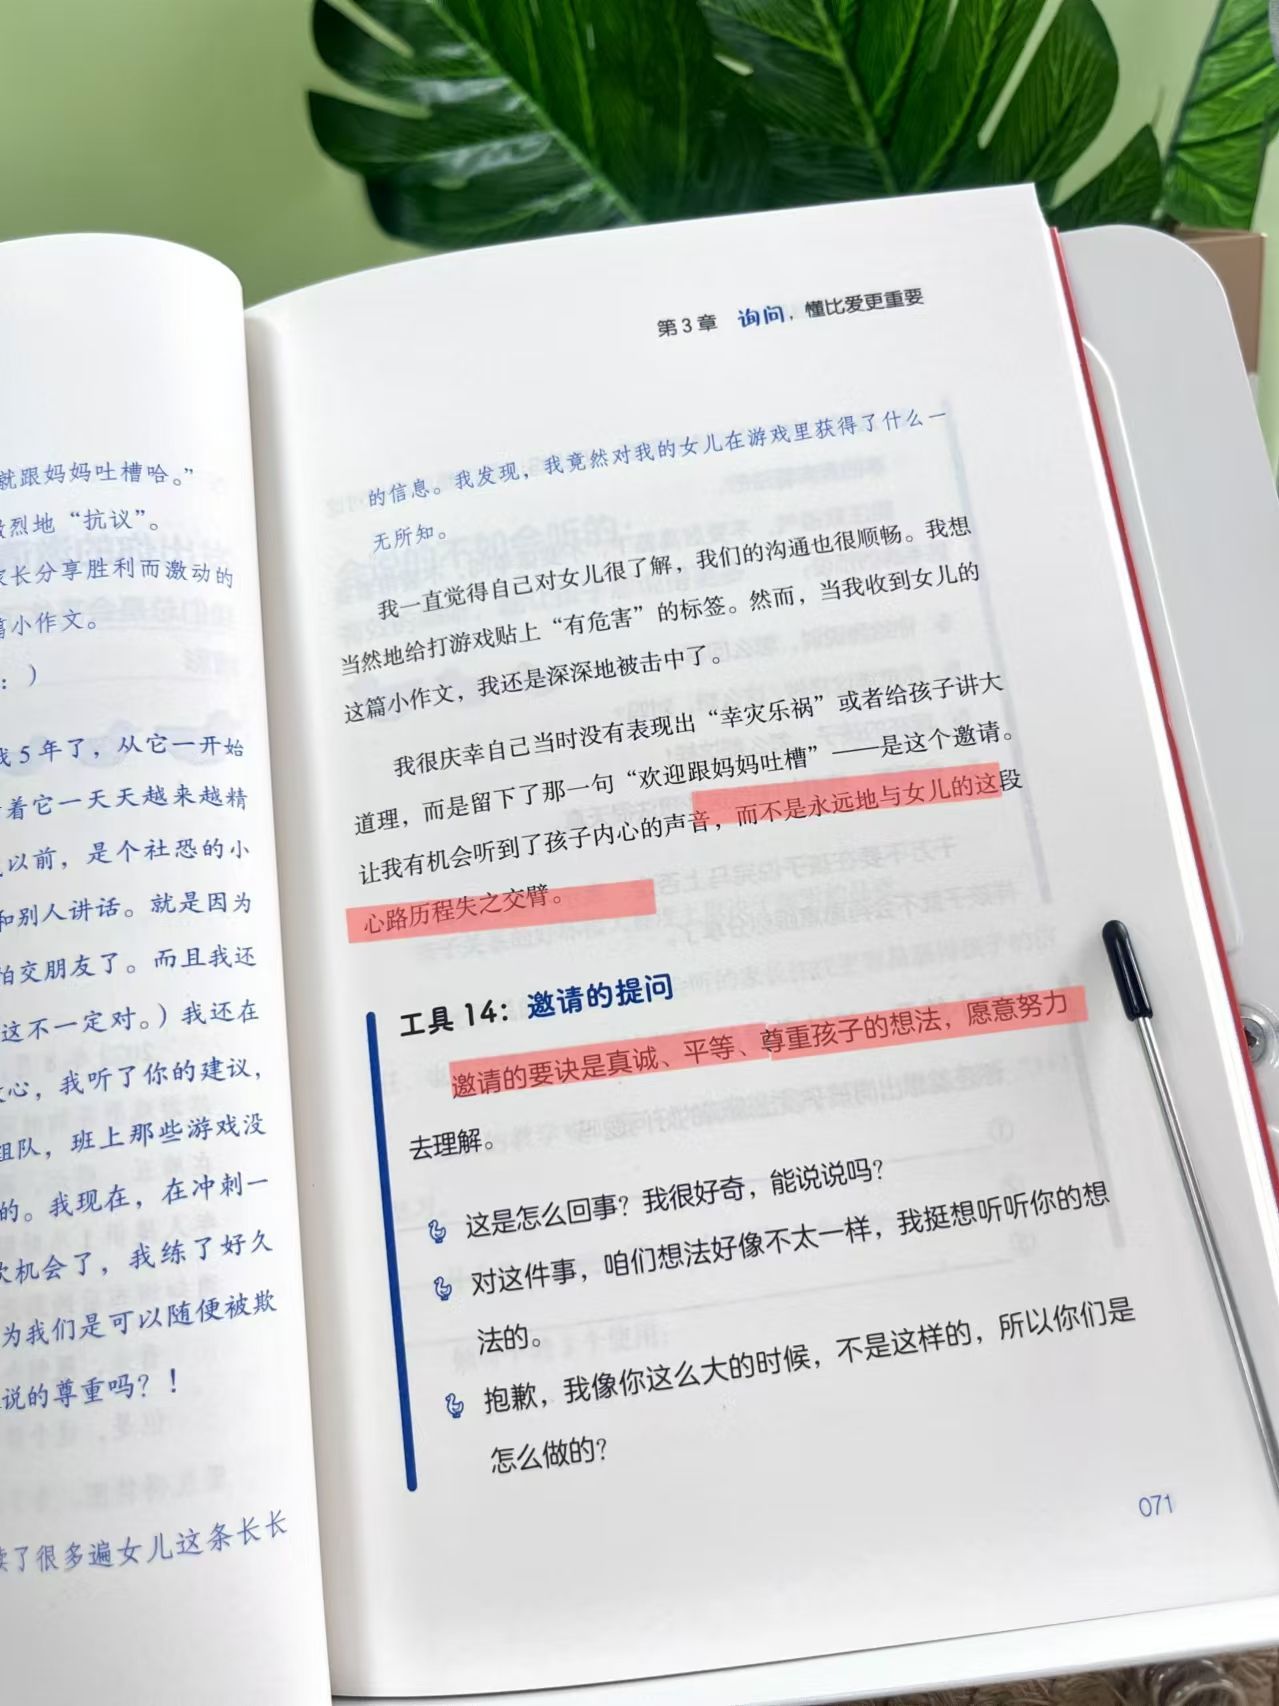 就跟妈妈吐槽哈。”
烈地“抗议”。
家长分享胜利而激动的
篇小作文。
：）
我5年了，从它一开始
着它一天天越来越精
以前，是个社恐的小
和别人讲话。就是因为
怕交朋友了。而且我还
这不一定对。）我还在
心，我听了你的建议，
组队，班上那些游戏没
的。我现在，在冲刺一
次机会了，我练了好久
为我们是可以随便被欺
说的尊重吗？！
读了很多遍女儿这条长长
第3章 询问，懂比爱更重要
的信息。我发现，我竟然对我的女儿在游戏里获得了什么一
无所知。
我一直觉得自己对女儿很了解，我们的沟通也很顺畅。我想
当然地给打游戏贴上“有危害”的标签。然而，当我收到女儿的
这篇小作文，我还是深深地被击中了。
我很庆幸自己当时没有表现出“幸灾乐祸”或者给孩子讲大
道理，而是留下了那一句“欢迎跟妈妈吐槽”——是这个邀请。
让我有机会听到了孩子内心的声音，而不是永远地与女儿的这段
心路历程失之交臂。
工具 14：邀请的提问
邀请的要诀是真诚、平等、尊重孩子的想法，愿意努力
去理解。
这是怎么回事？我很好奇，能说说吗？
对这件事，咱们想法好像不太一样，我挺想听听你的想
法的。
抱歉，我像你这么大的时候，不是这样的，所以你们是
怎么做的？
071